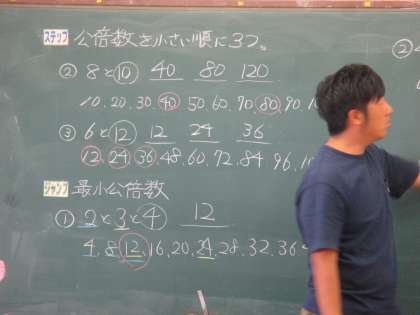 ステップ 公倍数を小さい順に3つ。
② 8と10 40 80 120
10.20.30.40.50.60.70.80.90.1
③ 6と12 12 24 36
12.24.36.48.60.72.84 96.1
ジャンプ 最小公倍数
① 2と3と4 12
4.8.12.16.20.24.28.32.36.
②